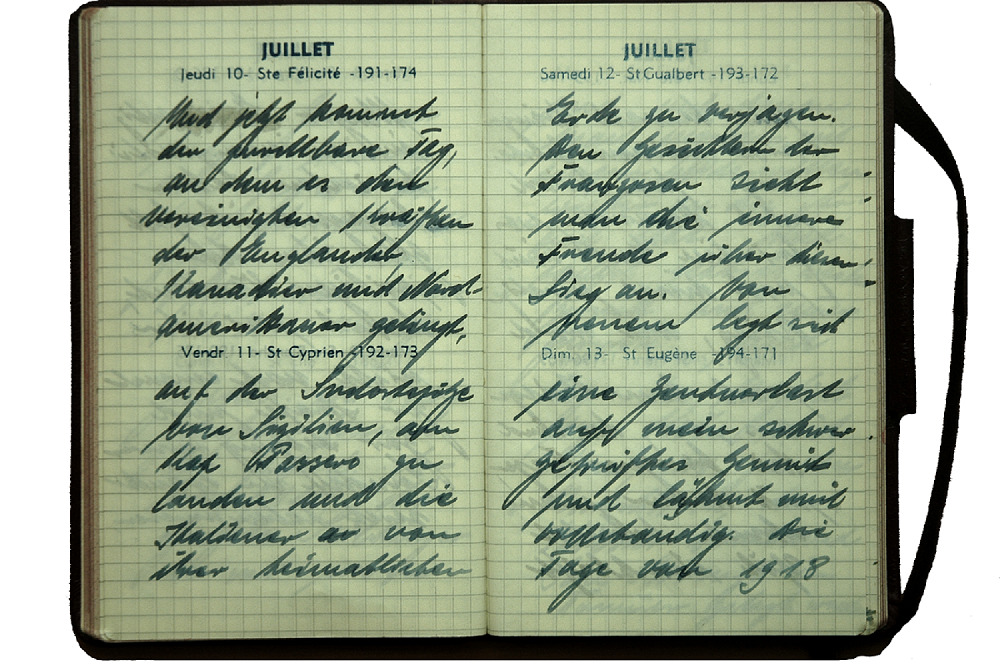 JUILLET
Jeudi 10- Ste Félicité -191-174
Und jetzt kommt
der furchtbare Tag,
an dem es den
vereinigten Kräften
der Engländer
Kanadier und Nord-
amerikaner gelingt,
Vendr. 11- St Cyprien -192-173
auf der Südostspitze
von Sizilien, am
Kap Passero zu
landen und die
Italiener av von
ihrer heimatlichen
JUILLET
Samedi 12- St Gualbert -193-172
Erde zu verjagen.
Den Gesichtern der
Franzosen sieht
man die innere
Freude über diesen
Sieg an. Von
neuem legt sich
Dim. 13- St Eugène -194-171
eine Zentnerlast
auf mein schwer
geprüftes Gemüt
und lähmt mich
vollständig. Die
Tage von 1918